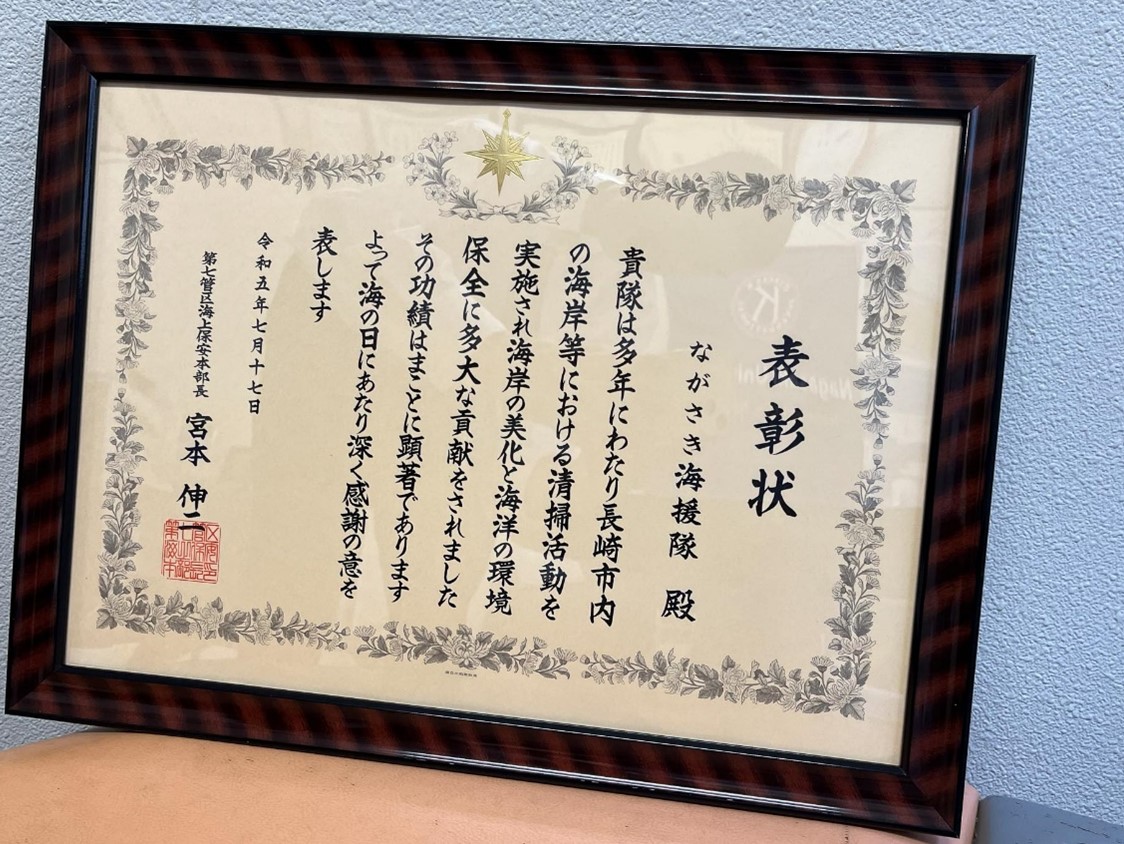 表彰状
ながさき海援隊 殿
貴隊は多年にわたり長崎市内
の海岸等における清掃活動を
実施され海岸の美化と海洋の環境
保全に多大な貢献をされました
その功績はまことに顕著であります
よって海の日にあたり深く感謝の意を
表します
令和五年七月十七日
第七管区海上保安本部長 宮本 伸二